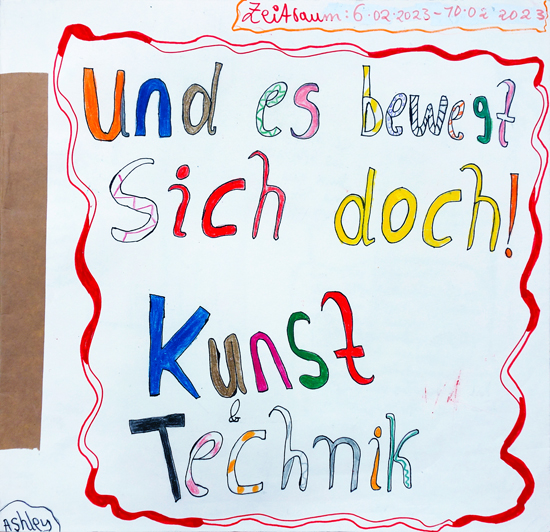 Zeitraum: 6.02.2023-10.02.2023
Und es bewegt
Sich doch!
Kunst
&
Technik
Ashley